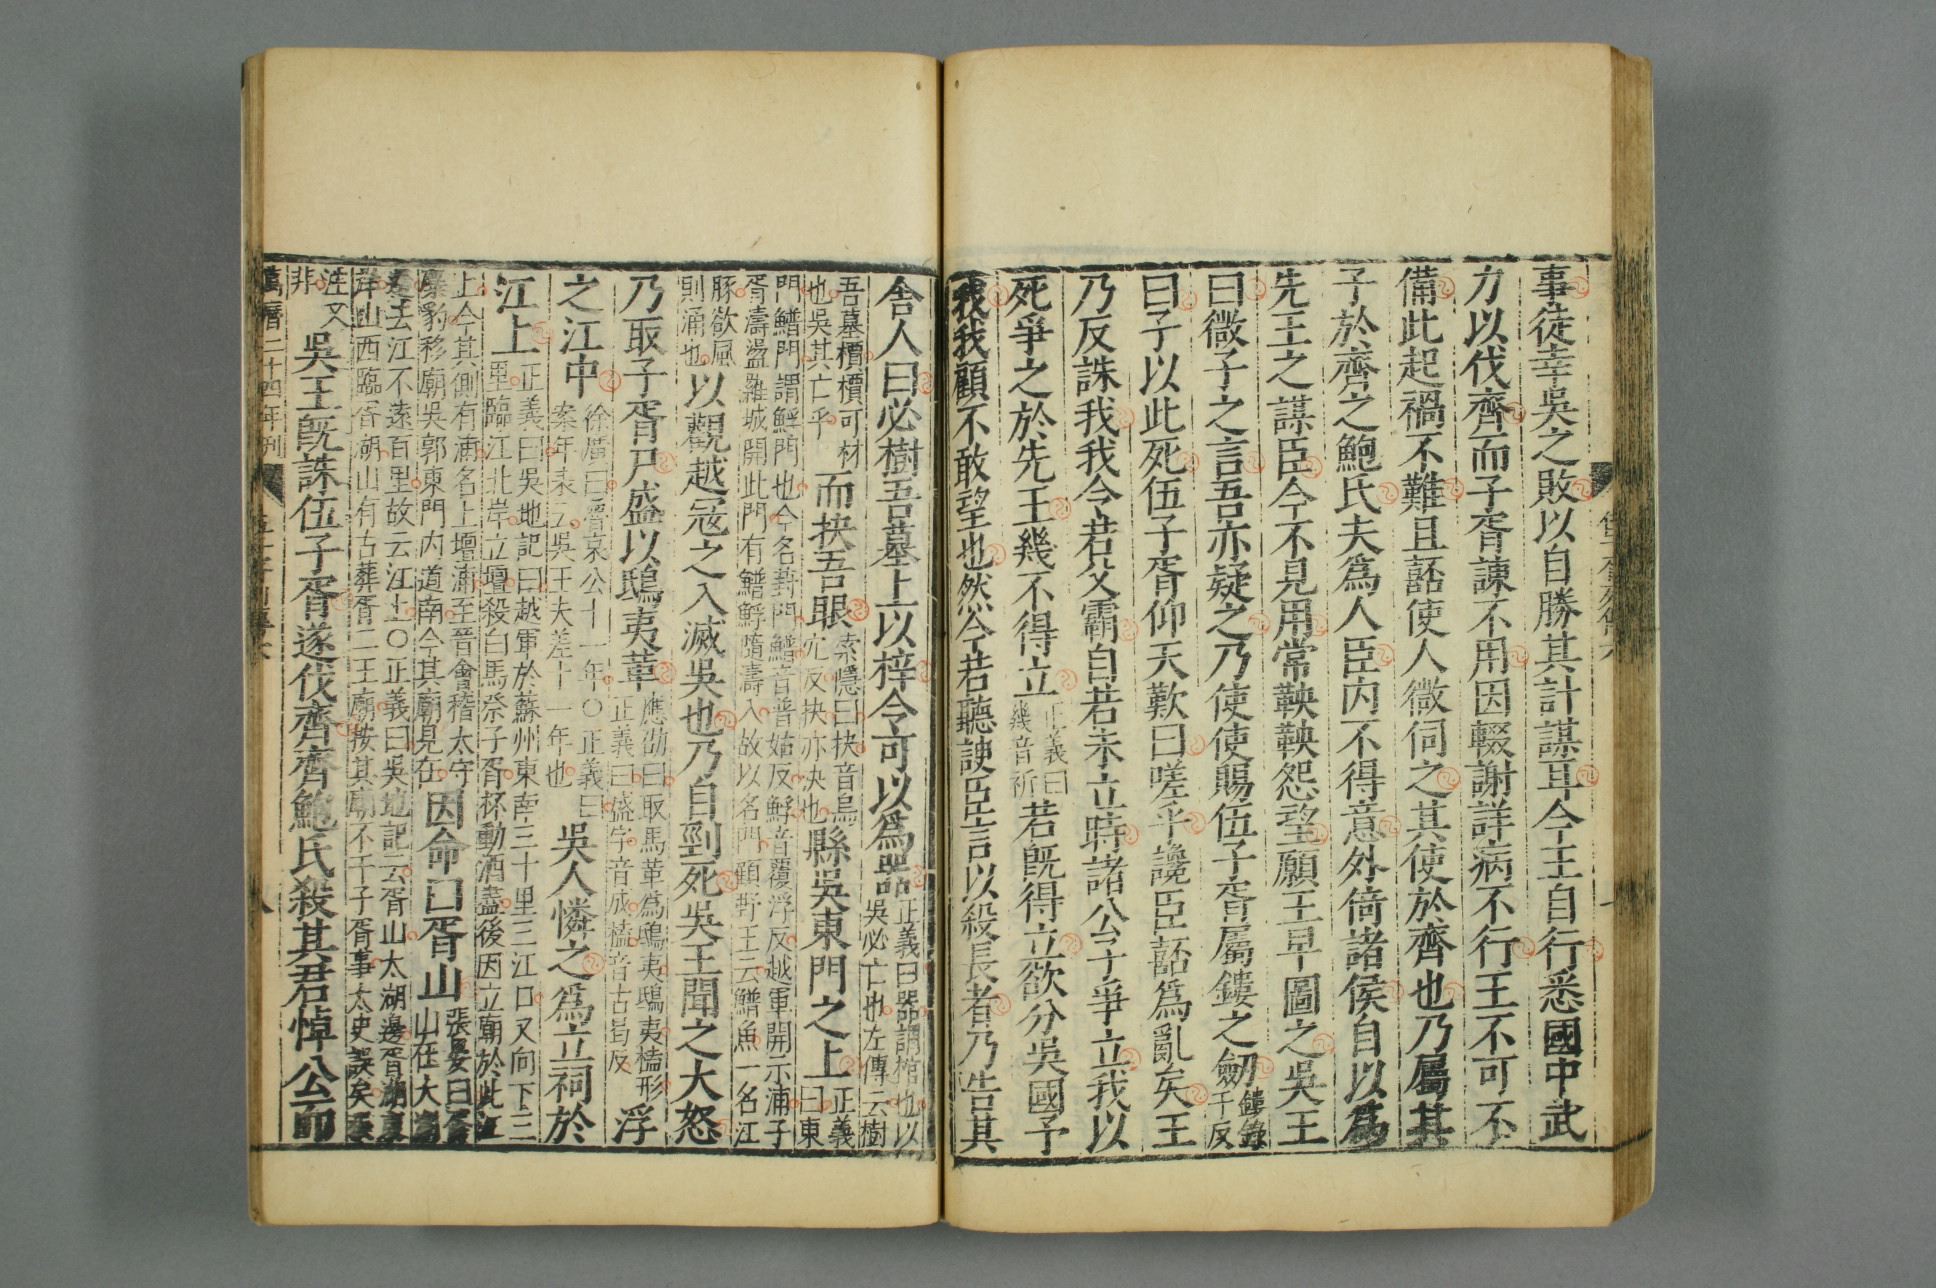 事徒幸吳之敗以自勝其計謀耳今王自行悉國中武
力以伐齊而子胥諫不用因輟謝詳病不行王不可不
備此起禍不難且嚭使人微伺之其使於齊也乃屬其
子於齊之鮑氏夫爲人臣内不得意外倚諸侯自以爲
先王之謀臣今不見用常鞅鞅怨望願王早圖之吳王
曰微子之言吾亦疑之乃使使賜伍子胥屬鏤之劒鏤錄
于反
曰子以此死伍子胥仰天歎曰嗟乎讒臣嚭爲亂矣王
乃反誅我我令若父霸自若未立時諸公子爭立我以
死爭之於先王幾不得立正義曰
幾音祈若既得立欲分吳國予
我我顧不敢望也然今若聽諛臣言以殺長者乃告其
舍人曰必樹吾墓上以梓令可以爲器正義曰器謂棺也以
吳必亡也左傳云樹
吾墓檟檟可材
也吳其亡乎而抉吾眼索隱曰抉音烏
穴反抉亦决也縣吳東門之上正義
曰東
門鱛門謂鱘門也今名葑門鱛音普姑反鱘音覆浮反越軍開示浦子
胥濤盪羅城開此門有鱛鱘隨濤入故以名門顧野王云鱛魚一名江
豚欲風
則涌也以觀越寇之入滅吳也乃自剄死吳王聞之大怒
乃取子胥尸盛以鴟夷革應劭曰取馬革爲鴟夷鴟夷榼形
正義曰盛字音成榼音古曷反浮
之江中徐廣曰魯哀公十一年○正義曰
案年表云吳王夫差十一年也吳人憐之爲立祠於
江上正義曰吳地記曰越軍於蘇州東南三十里三江口又向下三
里臨江北岸立壇殺白馬祭子胥杯動酒盡後因立廟於此江
上今其側有浦名上壇浦至晉會稽太守
麋豹移廟吳郭東門内道南今其廟見在因命曰胥山張晏曰胥
山在大
湖邊去江不遠百里故云江上○正義曰吳地記云胥山太湖邊胥湖東
岸山西臨胥湖山有古葬胥二王廟按其廟不干子胥事太史誤矣張
注又
非吳王既誅伍子胥遂伐齊齊鮑氏殺其君悼公而
萬曆二十四年刊
八